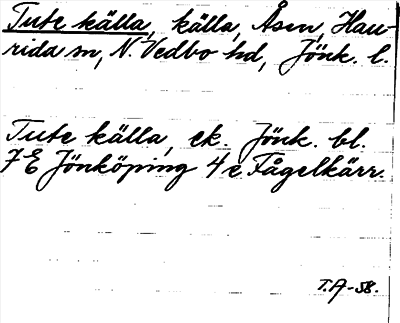 Tute källa, källa, Åsen, Hau-
rida sn, N. Vedbo hd, Jönk. l.
Tute källa, ek. Jönk. bl.
7 E Jönköping 4 e Fågelkärr.
T.A-58.